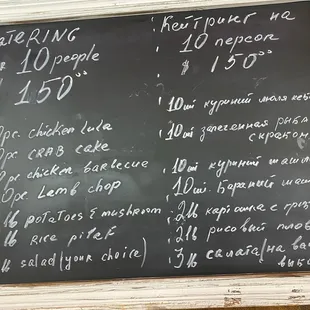 CATERING
10 people
150⁰⁰
10pc. chicken lula
10pc CRAB cake
10pc chicken barbecue
10pc Lamb chop
lb potatoes & mushroom
lb Rice pilaf
lb salad (your choice)
Кейтринг на
10 персон
$ 150⁰⁰
10шт куриний люля кеб
10шт запеченная рыба
с крабом
10шт куриний шашл
10шт. Бараний шаш
2lb картошка с гриб
2lb рисовый плов
3lb салата/на ва
выб